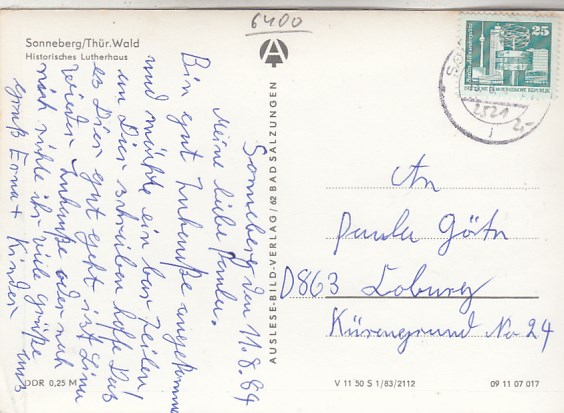 6400
Sonneberg/Thür. Wald
Historisches Lutherhaus
Sonneberg den 11.8.84
Meine liebe Paula.
Bin gut Zuhauße angekomm
und müchte ein bar Zeilen
an Dier schreiben hoffe das
es Dier gut geht ist
wieder Zuhauße oder noch
nich viele grüße
gruß Erna + Kinder
AUSLESE-BILD-VERLAG / 62 BAD SALZUNGEN
25
Berlin, Alexanderplatz
DEUTSCHE DEMOKRATISCHE REPUBLIK
An
Paula Götz
D863 Coburg
Kürengrund No 24
DDR 0,25 M
V 11 50 S 1/83/2112
09 11 07 017